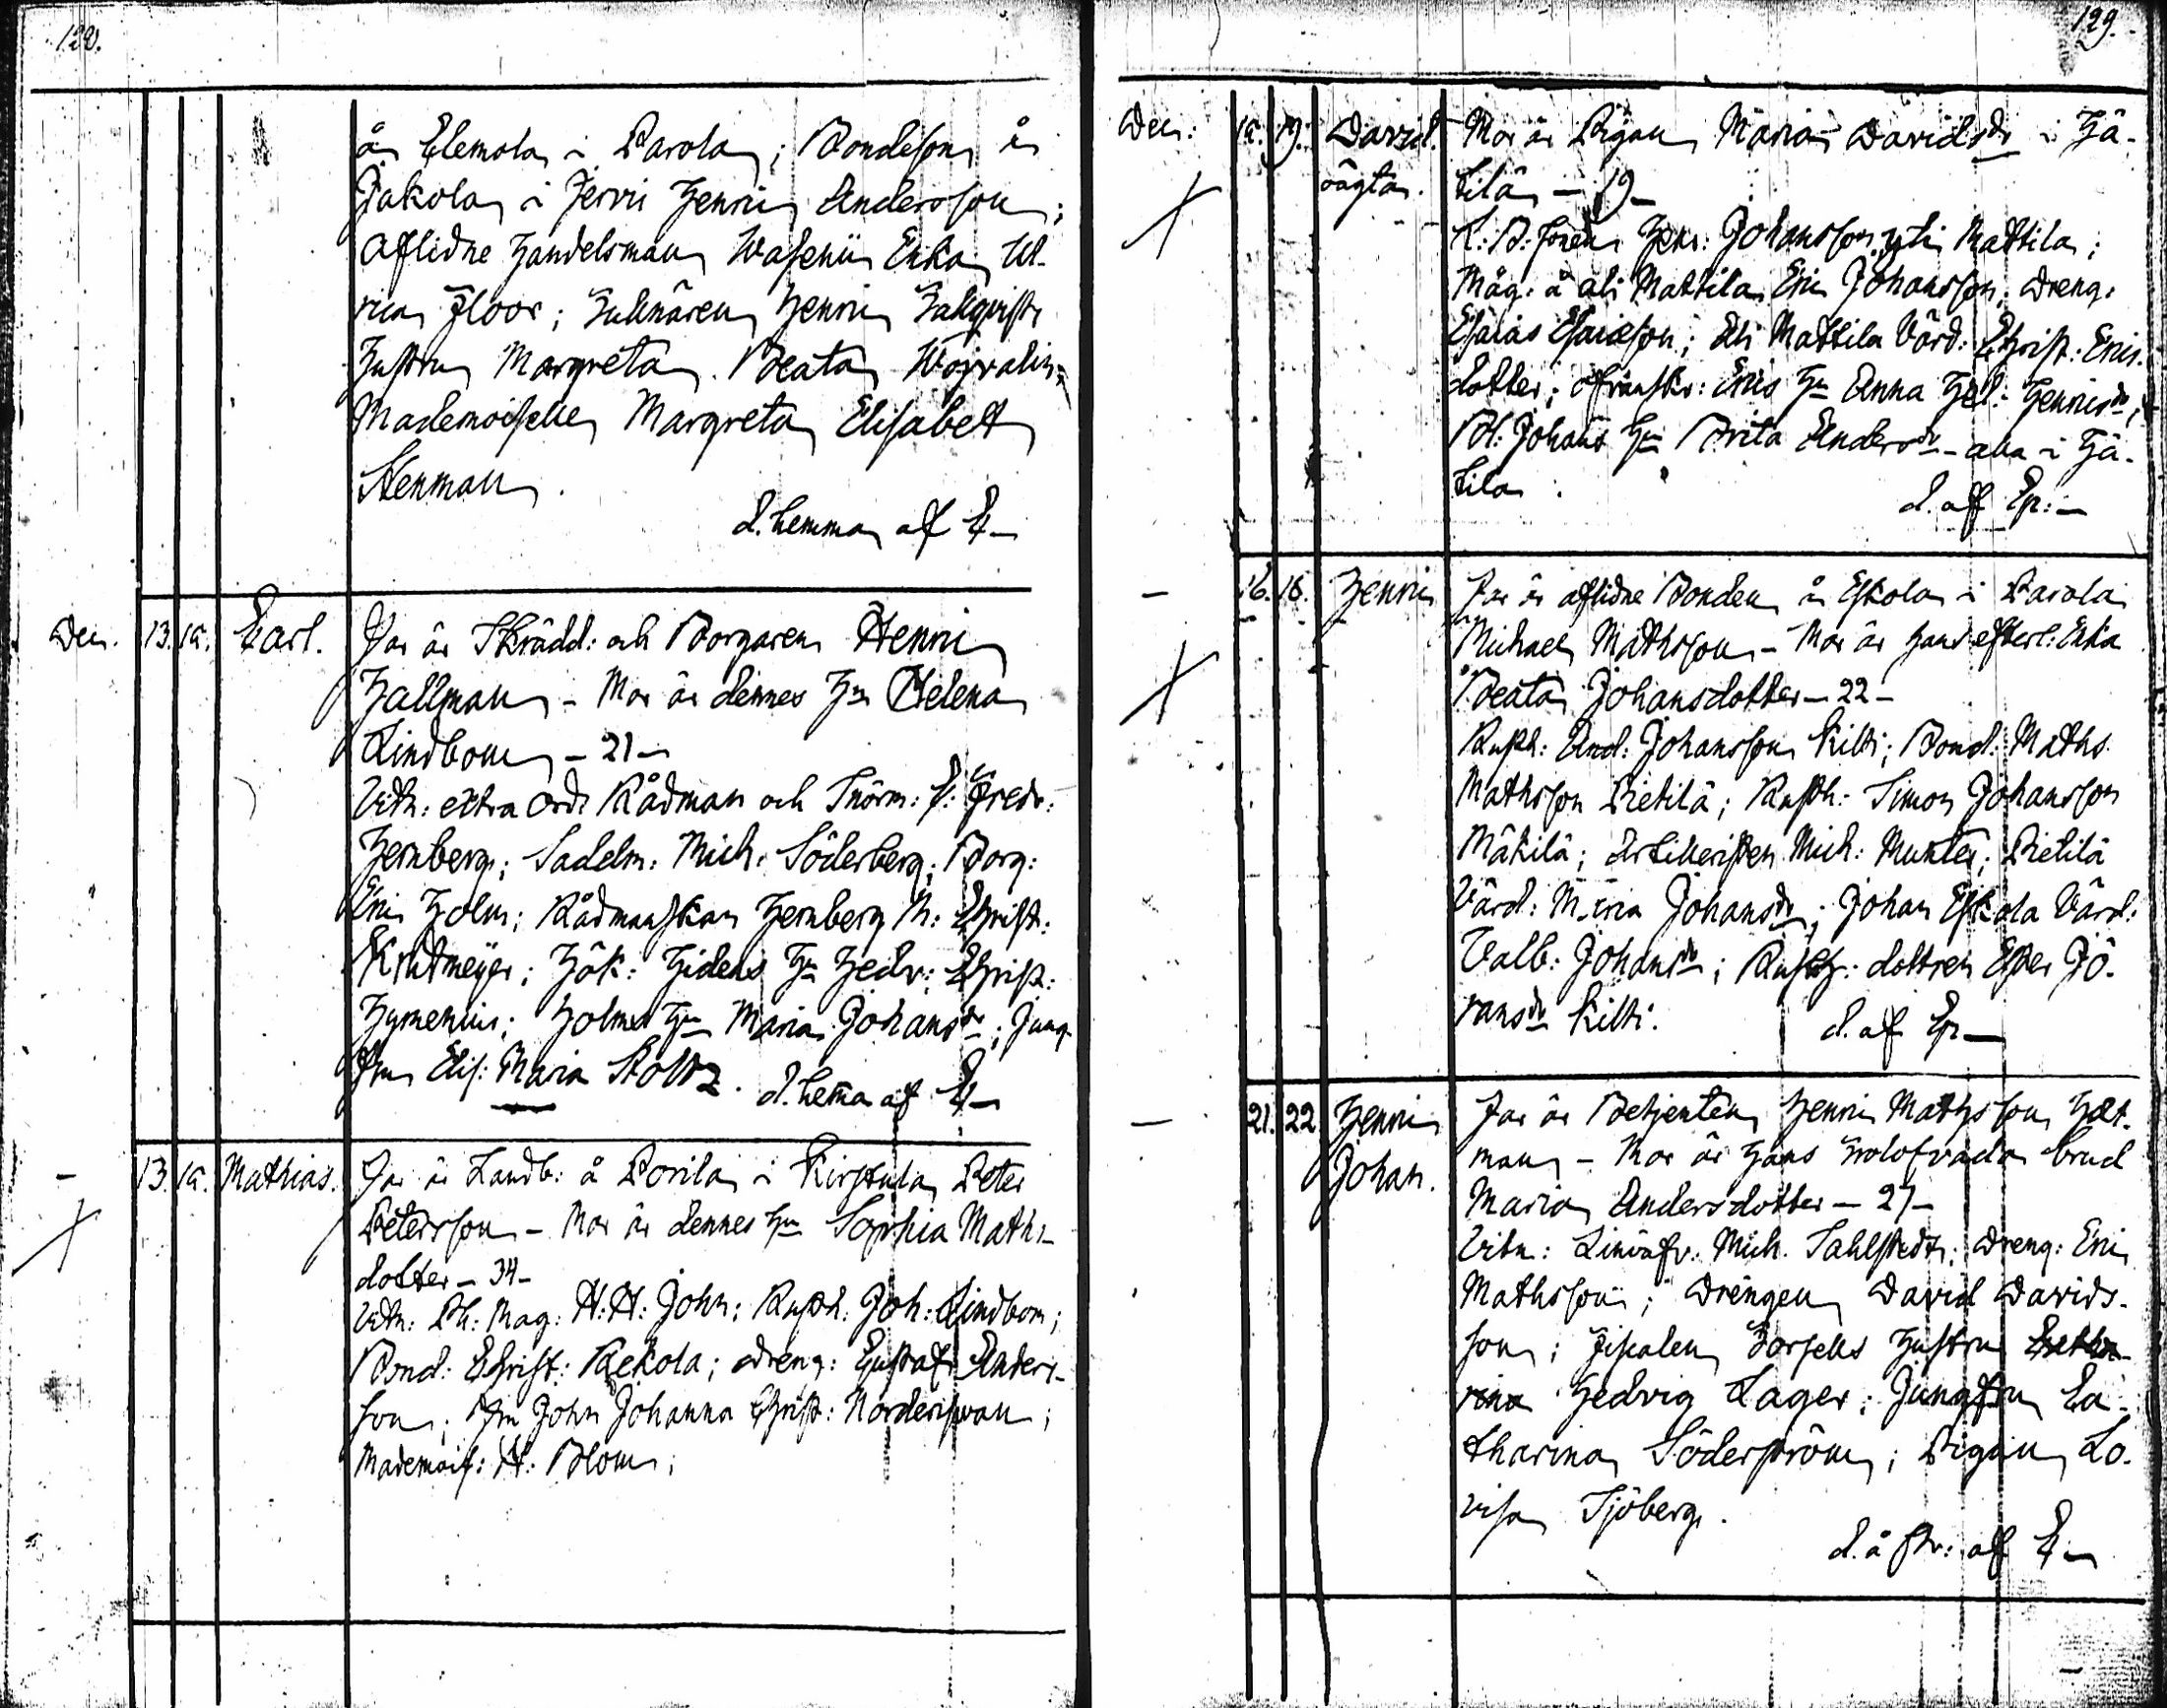 128.
å Elemola i Parola; Bondeson å
Jakola i Jervis Henric Andersson;
Aflidne Handelsman Wasenii Enka Ul-
rica Floor;
Hustru Margreta Beata
Mademoiselle Margreta Elisabet
Stenman.
d. hemma af E-
Dec. 13. 14. Carl. Far är Skrädd: och Borgaren Henric
Hallman - Mor är dennes Hu Helena
Lindbom - 21 -
Vitn: extra Ord: Rådman och Snörm: F: Fredr:
Hernberg; Sadelm: Mich: Söderberg; Borg:
Eric Holm; Rådmanskan Hernberg M: Christ:
Krutmeyer; Hök: Hidens Hu Hedv: Christ:
Hymenius; Holms Hu Maria Johansdr; Jung-
fru Elis: Maria Stoltz.
d. hema af E-
- 13. 14. Mathias. Far är Landb: å Porila i Kirstula Peter
Petersson - Mor är dennes Hu Sophia Maths-
dotter - 34 -
Vitn: Ph: Mag: H: H: John; Rusth: Joh: Lindbom;
Bond: Christ: Rekola; Dreng: Gustaf Anders-
son; Fru John Johanna Christ: Nordenswan;
Mademois: H: Blom;
129.
Dec: 14. 19. David. Mor är Pigan Maria Davidsdr i Hä-
oägta. tilä - 19 -
Henr: Johansson yli Mattila;
Måg: å ali Mattila Eric Johansson; Dreng:
Esaias Esaiesson; Ali Mattila Värd: Christ: Erics-
dotter; Erics Hu Anna Hel: Henricsdr;
Johans Hu Brita Andersdr - alla i Hä-
tilä.
d. af Ep: -
- 16. 18. Henric Far är aflidne Bonden å Eskola i Parola
Michael Mathsson - Mor är hans efterl: Enka
Beata Johansdotter - 22 -
Rusth: And: Johansson Kilti; Bond: Maths
Mathsson Pietilä; Rusth: Simon Johansson
Mäkilä; Artilleristen Mich: Munter; Pietilä
Värd: Maria Johansdr; Johan Eskola Värd:
Valb: Johansdr; Rusth: dottren Ester Jö-
ransdr Kilti.
d. af Ep -
- 21. 22. Henric Far är Betjenten Henric Mathsson Hät-
Johan. man - Mor är Hans trolofvada brud
Maria Andersdotter - 27 -
Vitn: Linväfv: Mich. Sahlstedt; Dreng: Eric
Mathsson; Drengen David Davids-
son; Fiskalen Forsells Hustru Catha-
rina Hedvig Lager; Jungfru Ca-
tharina Söderström; Pigan Lo-
visa Sjöberg.
d. å af E-